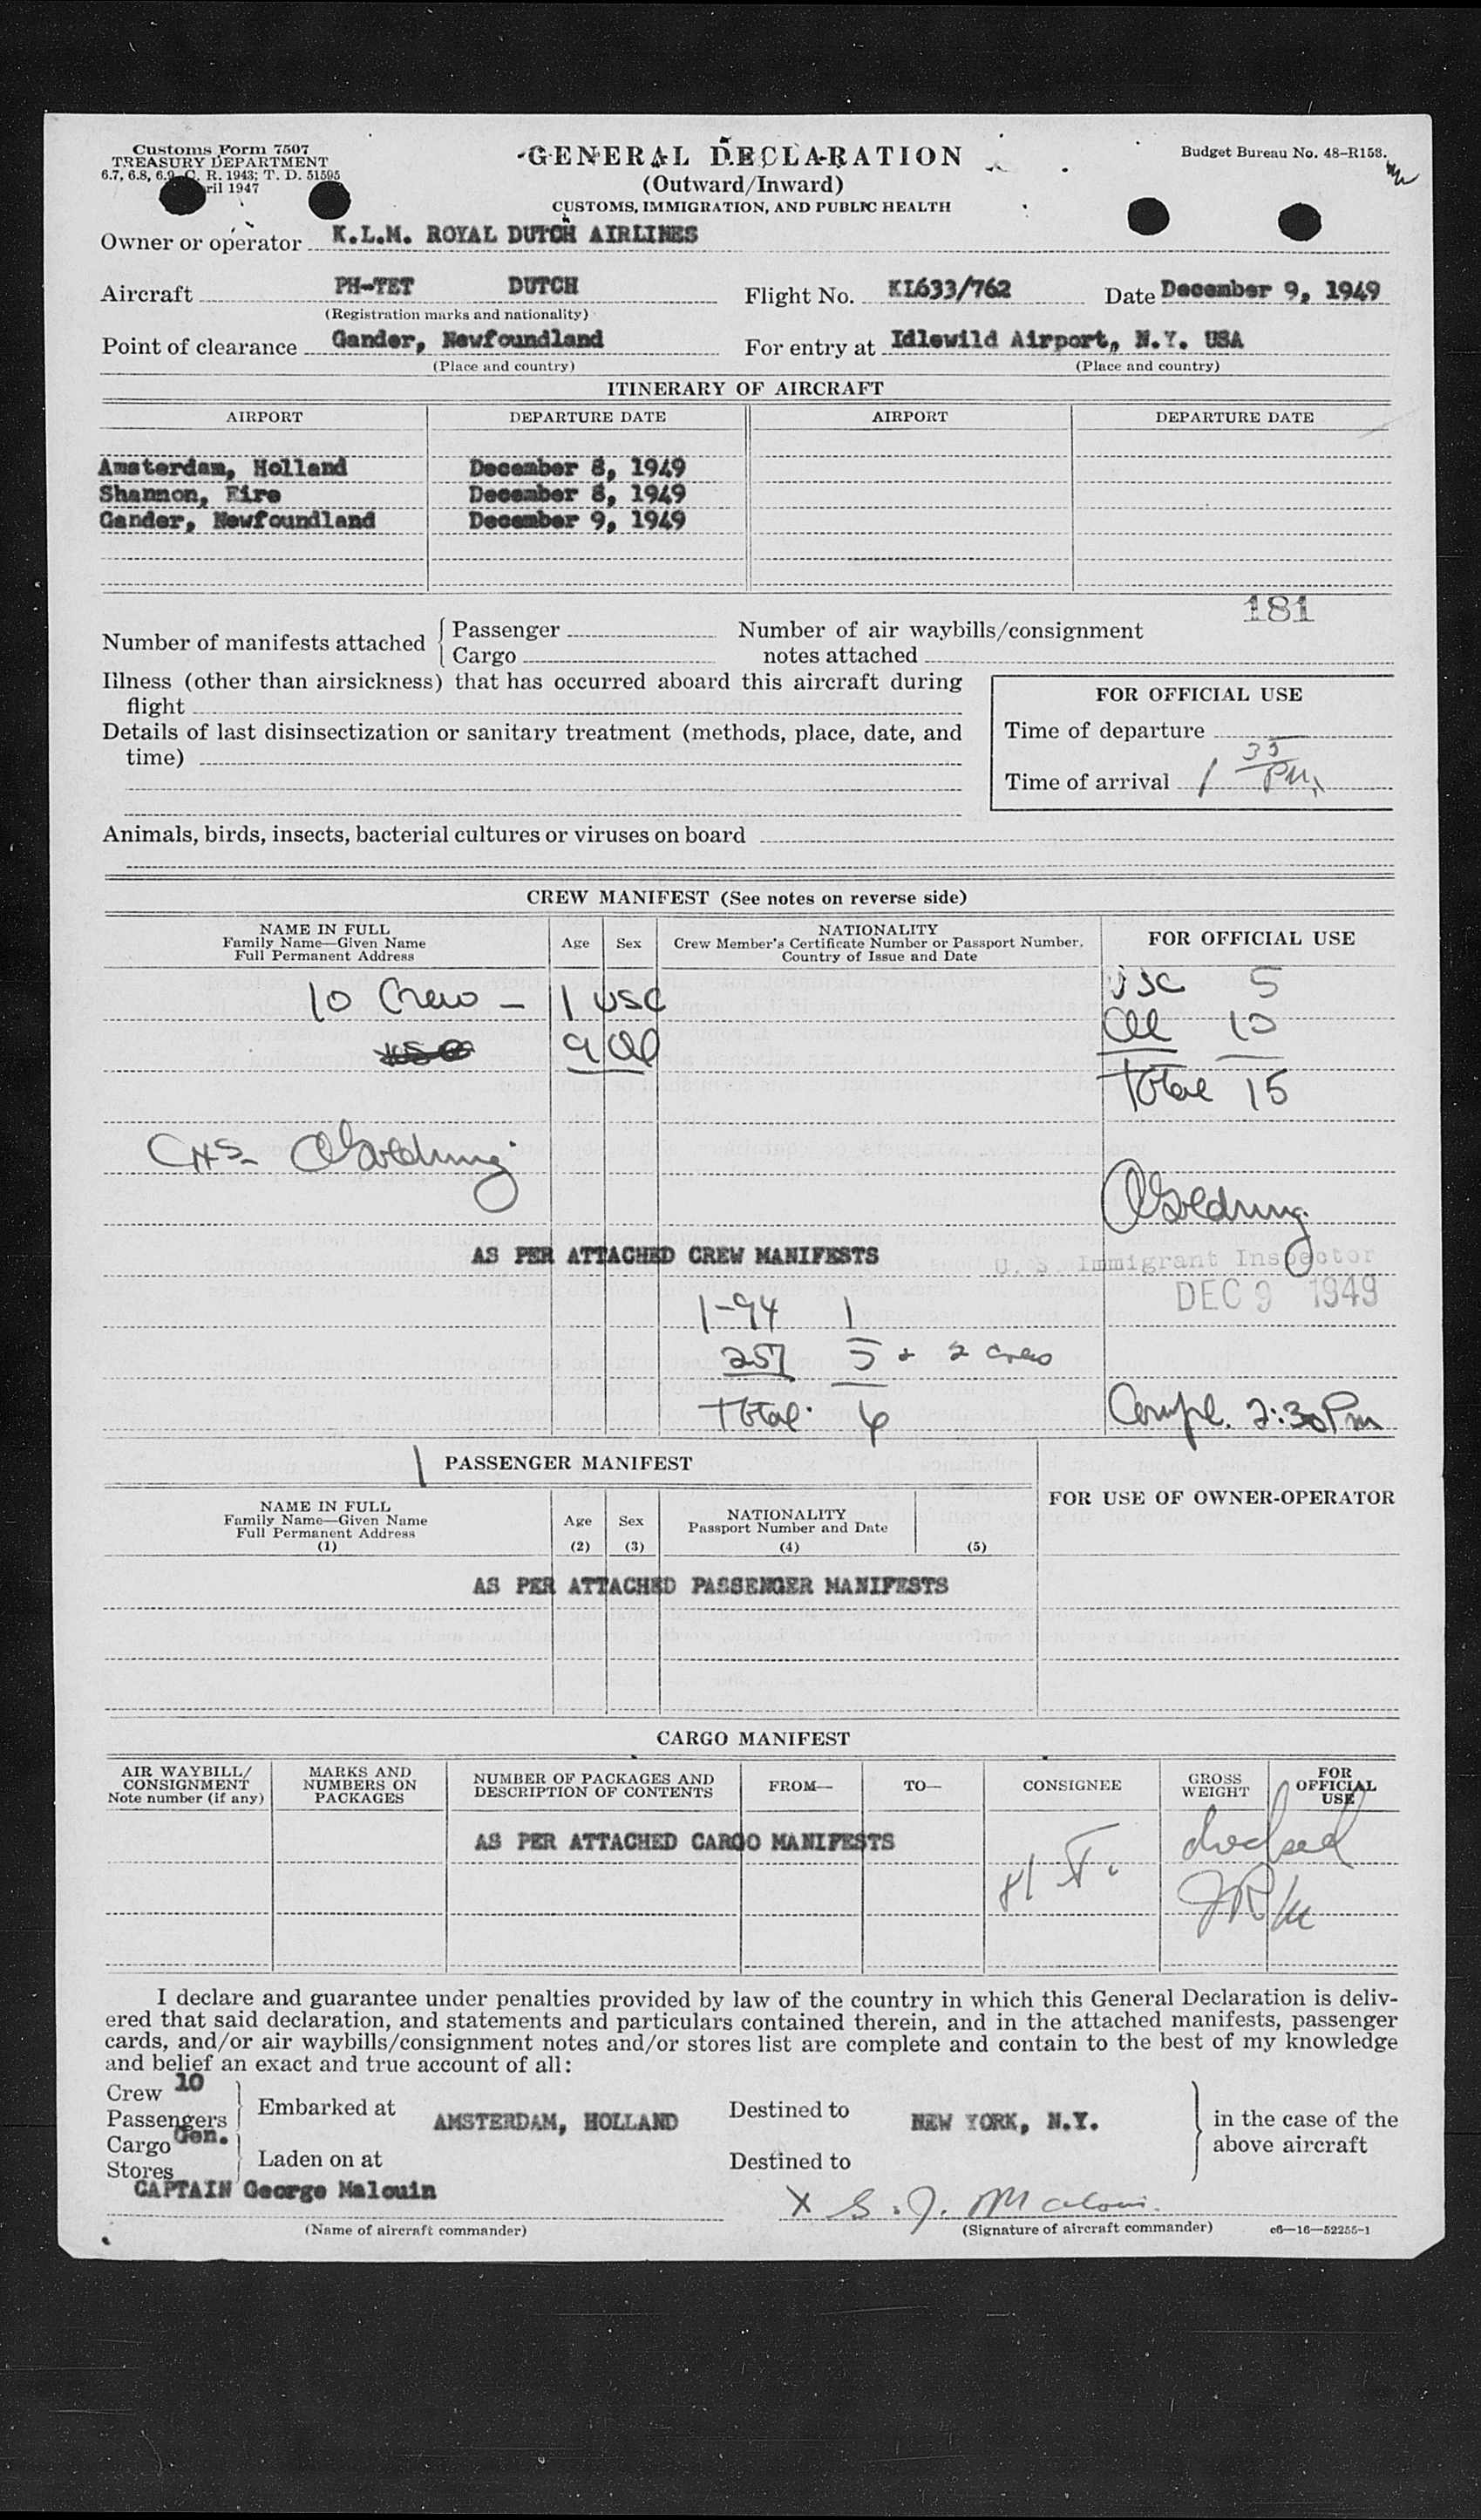 Customs Form 7507
TREASURY DEPARTMENT
6.7, 6.8, 6.9, C. R. 1943; T. D. 51595
ril 1947
GENERAL DECLARATION
(Outward/Inward)
CUSTOMS, IMMIGRATION, AND PUBLIC HEALTH
Budget Bureau No. 48-R158.
Owner or operator K.L.M. ROYAL DUTCH AIRLINES
Aircraft PH-TET DUTCH Flight No. KL633/762 Date December 9, 1949
(Registration marks and nationality)
Point of clearance Gander, Newfoundland For entry at Idlewild Airport, N.Y. USA
(Place and country) (Place and country)
ITINERARY OF AIRCRAFT
AIRPORT DEPARTURE DATE AIRPORT DEPARTURE DATE
Amsterdam, Holland December 8, 1949
Shannon, Eire December 8, 1949
Gander, Newfoundland December 9, 1949
181
Number of manifests attached { Passenger
Cargo
Number of air waybills/consignment
notes attached
Illness (other than airsickness) that has occurred aboard this aircraft during
flight
Details of last disinsectization or sanitary treatment (methods, place, date, and
time)
FOR OFFICIAL USE
Time of departure
Time of arrival 1 35 PM
Animals, birds, insects, bacterial cultures or viruses on board
CREW MANIFEST (See notes on reverse side)
NAME IN FULL
Family Name—Given Name
Full Permanent Address
Age
Sex
NATIONALITY
Crew Member's Certificate Number or Passport Number,
Country of Issue and Date
FOR OFFICIAL USE
10 Crew — 1 USC
9 al
USC 5
al 10
Total 15
Goldring
Goldring
AS PER ATTACHED CREW MANIFESTS
U. S. Immigrant Inspector
DEC 9 1949
1-94 1
257 5 + 2 crew
Total 6
Compl. 2:30 Pm
1 PASSENGER MANIFEST
FOR USE OF OWNER-OPERATOR
NAME IN FULL
Family Name—Given Name
Full Permanent Address
(1)
Age
(2)
Sex
(3)
NATIONALITY
Passport Number and Date
(4)
(5)
AS PER ATTACHED PASSENGER MANIFESTS
CARGO MANIFEST
AIR WAYBILL/
CONSIGNMENT
Note number (if any)
MARKS AND
NUMBERS ON
PACKAGES
NUMBER OF PACKAGES AND
DESCRIPTION OF CONTENTS
FROM—
TO—
CONSIGNEE
GROSS
WEIGHT
FOR
OFFICIAL
USE
AS PER ATTACHED CARGO MANIFESTS
I declare and guarantee under penalties provided by law of the country in which this General Declaration is deliv-
ered that said declaration, and statements and particulars contained therein, and in the attached manifests, passenger
cards, and/or air waybills/consignment notes and/or stores list are complete and contain to the best of my knowledge
and belief an exact and true account of all:
Crew 10
Passengers
Cargo Gen.
Stores
Embarked at AMSTERDAM, HOLLAND Destined to NEW YORK, N.Y.
Laden on at Destined to
in the case of the
above aircraft
CAPTAIN George Malouin
X G. J. Malouin
(Name of aircraft commander) (Signature of aircraft commander) c6—16—52255-1